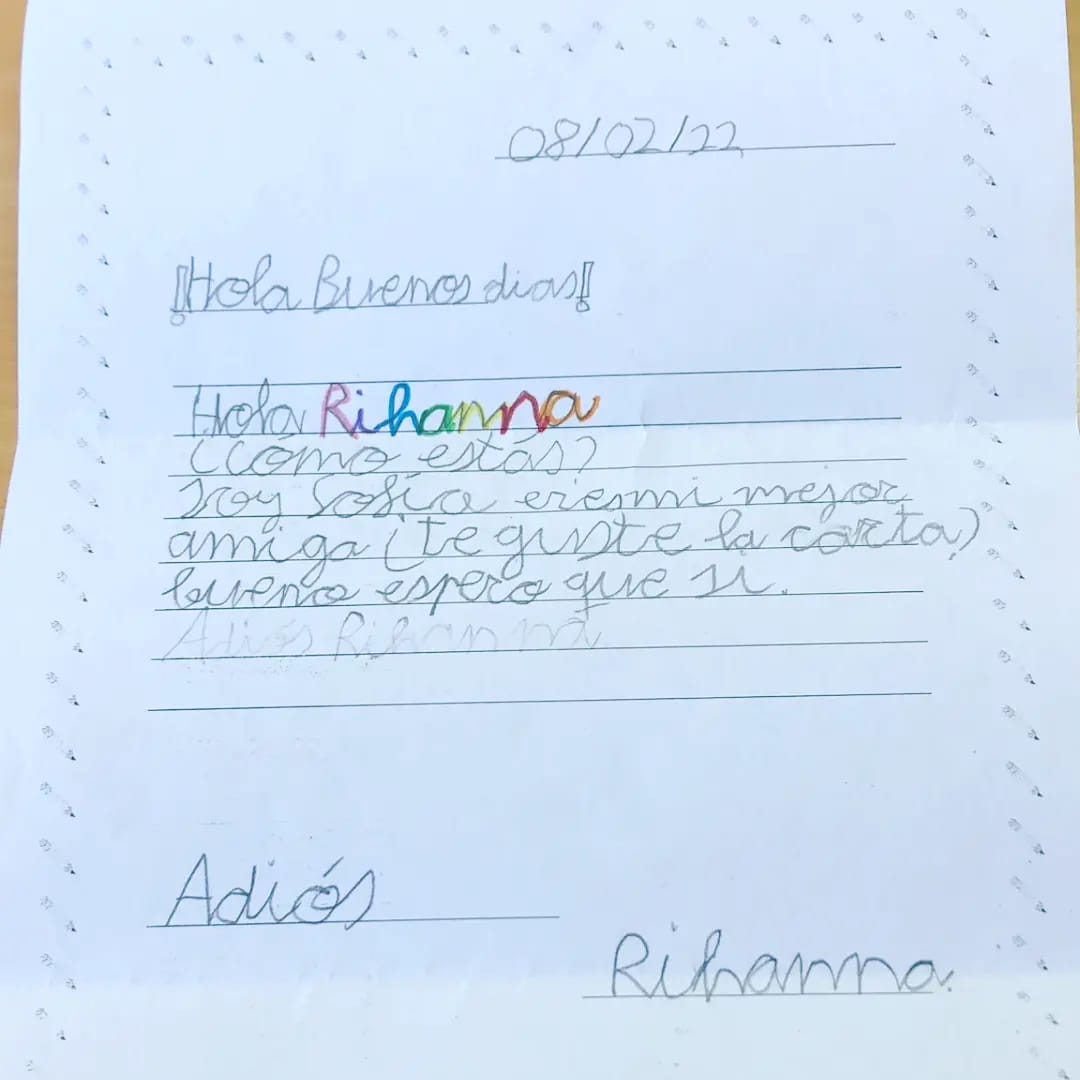 08/02/22
¡Hola Buenos dias!
Hola Rihanna
¿como estás?
Soy Sofía eres mi mejor
amiga ¿te guste la carta?
bueno espero que si.
Adiós Rihanna
Adiós
Rihanna.